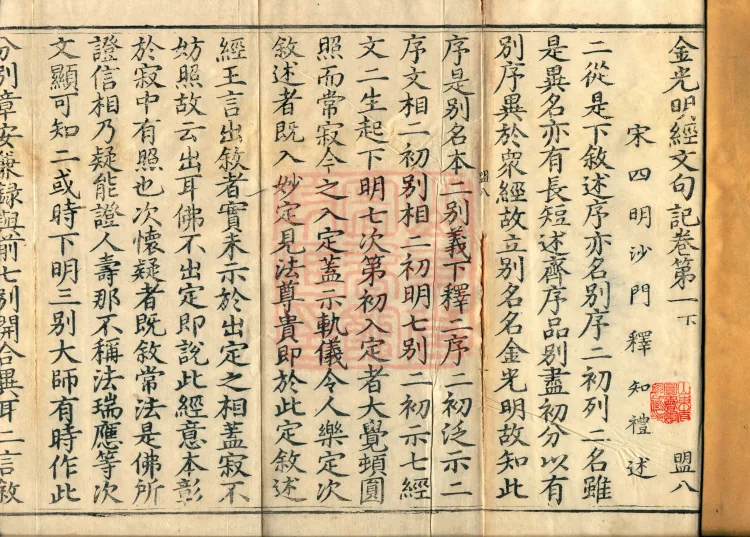 金光明經文句記卷第一下 盟八
宋四明沙門釋知禮述
二從是下敘述序亦名別序二初列二名雖
是異名亦有長短述齊序品別盡初分以有
別序異於衆經故立別名名金光明故知此
盟八
序是別名本二別義下釋二序二初泛示二
序文相二初別相二初明七別二初示七經
文二生起下明七次第初入定者大覺頓圓
照而常寂今之入定蓋示軌儀令人樂定次
敘述者既入妙定見法尊貴即於此定敘述
經王言出敘者實未示於出定之相蓋寂不
妨照故云出耳佛不出定即說此經意本彰
於寂中有照也次懷疑者既敘常法是佛所
證信相乃疑能證人壽那不稱法瑞應等次
文顯可知二或時下明三別大師有時作此
分別章安兼錄與前七別開合異耳二言敘